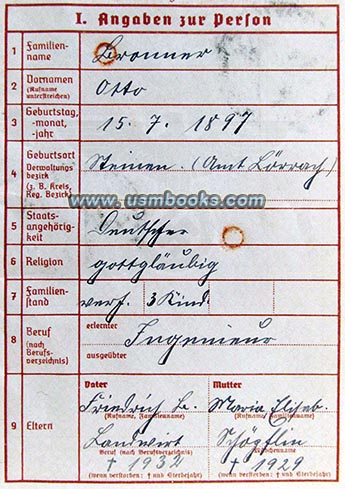 I. Angaben zur Person
1 Familien-
name
Bronner
2 Vornamen
(Rufname
unterstreichen)
Otto
3 Geburtstag,
-monat,
-jahr
15. 7. 1897
4 Geburtsort
Verwaltungs-
bezirk
(z. B. Kreis,
Reg. Bezirk)
Steinen (Amt Lörrach)
www.usmbooks.com
5 Staats-
angehörig-
keit
Deutscher
6 Religion
gottgläubig
7 Familien-
stand
verh. 3 Kind
8 Beruf
(nach
Berufs-
verzeichnis)
erlernter
Ingenieur
ausgeübter
9 Eltern
Vater
Friedrich B.
(Rufname, Familienname)
Landwirt
Beruf (nach Berufsverzeichnis)
† 1932
(wenn verstorben: † und Sterbejahr)
Mutter
Maria Eliseb.
(Rufname, Familienname)
Schöpflin
Mädchenname
† 1929
(wenn verstorben: † und Sterbejahr)